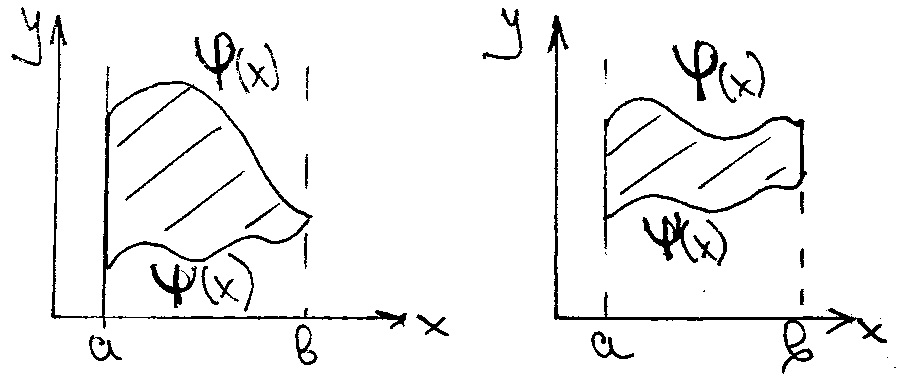 y φ(x)
ψ(x)
a в x
y φ(x)
ψ(x)
a в x